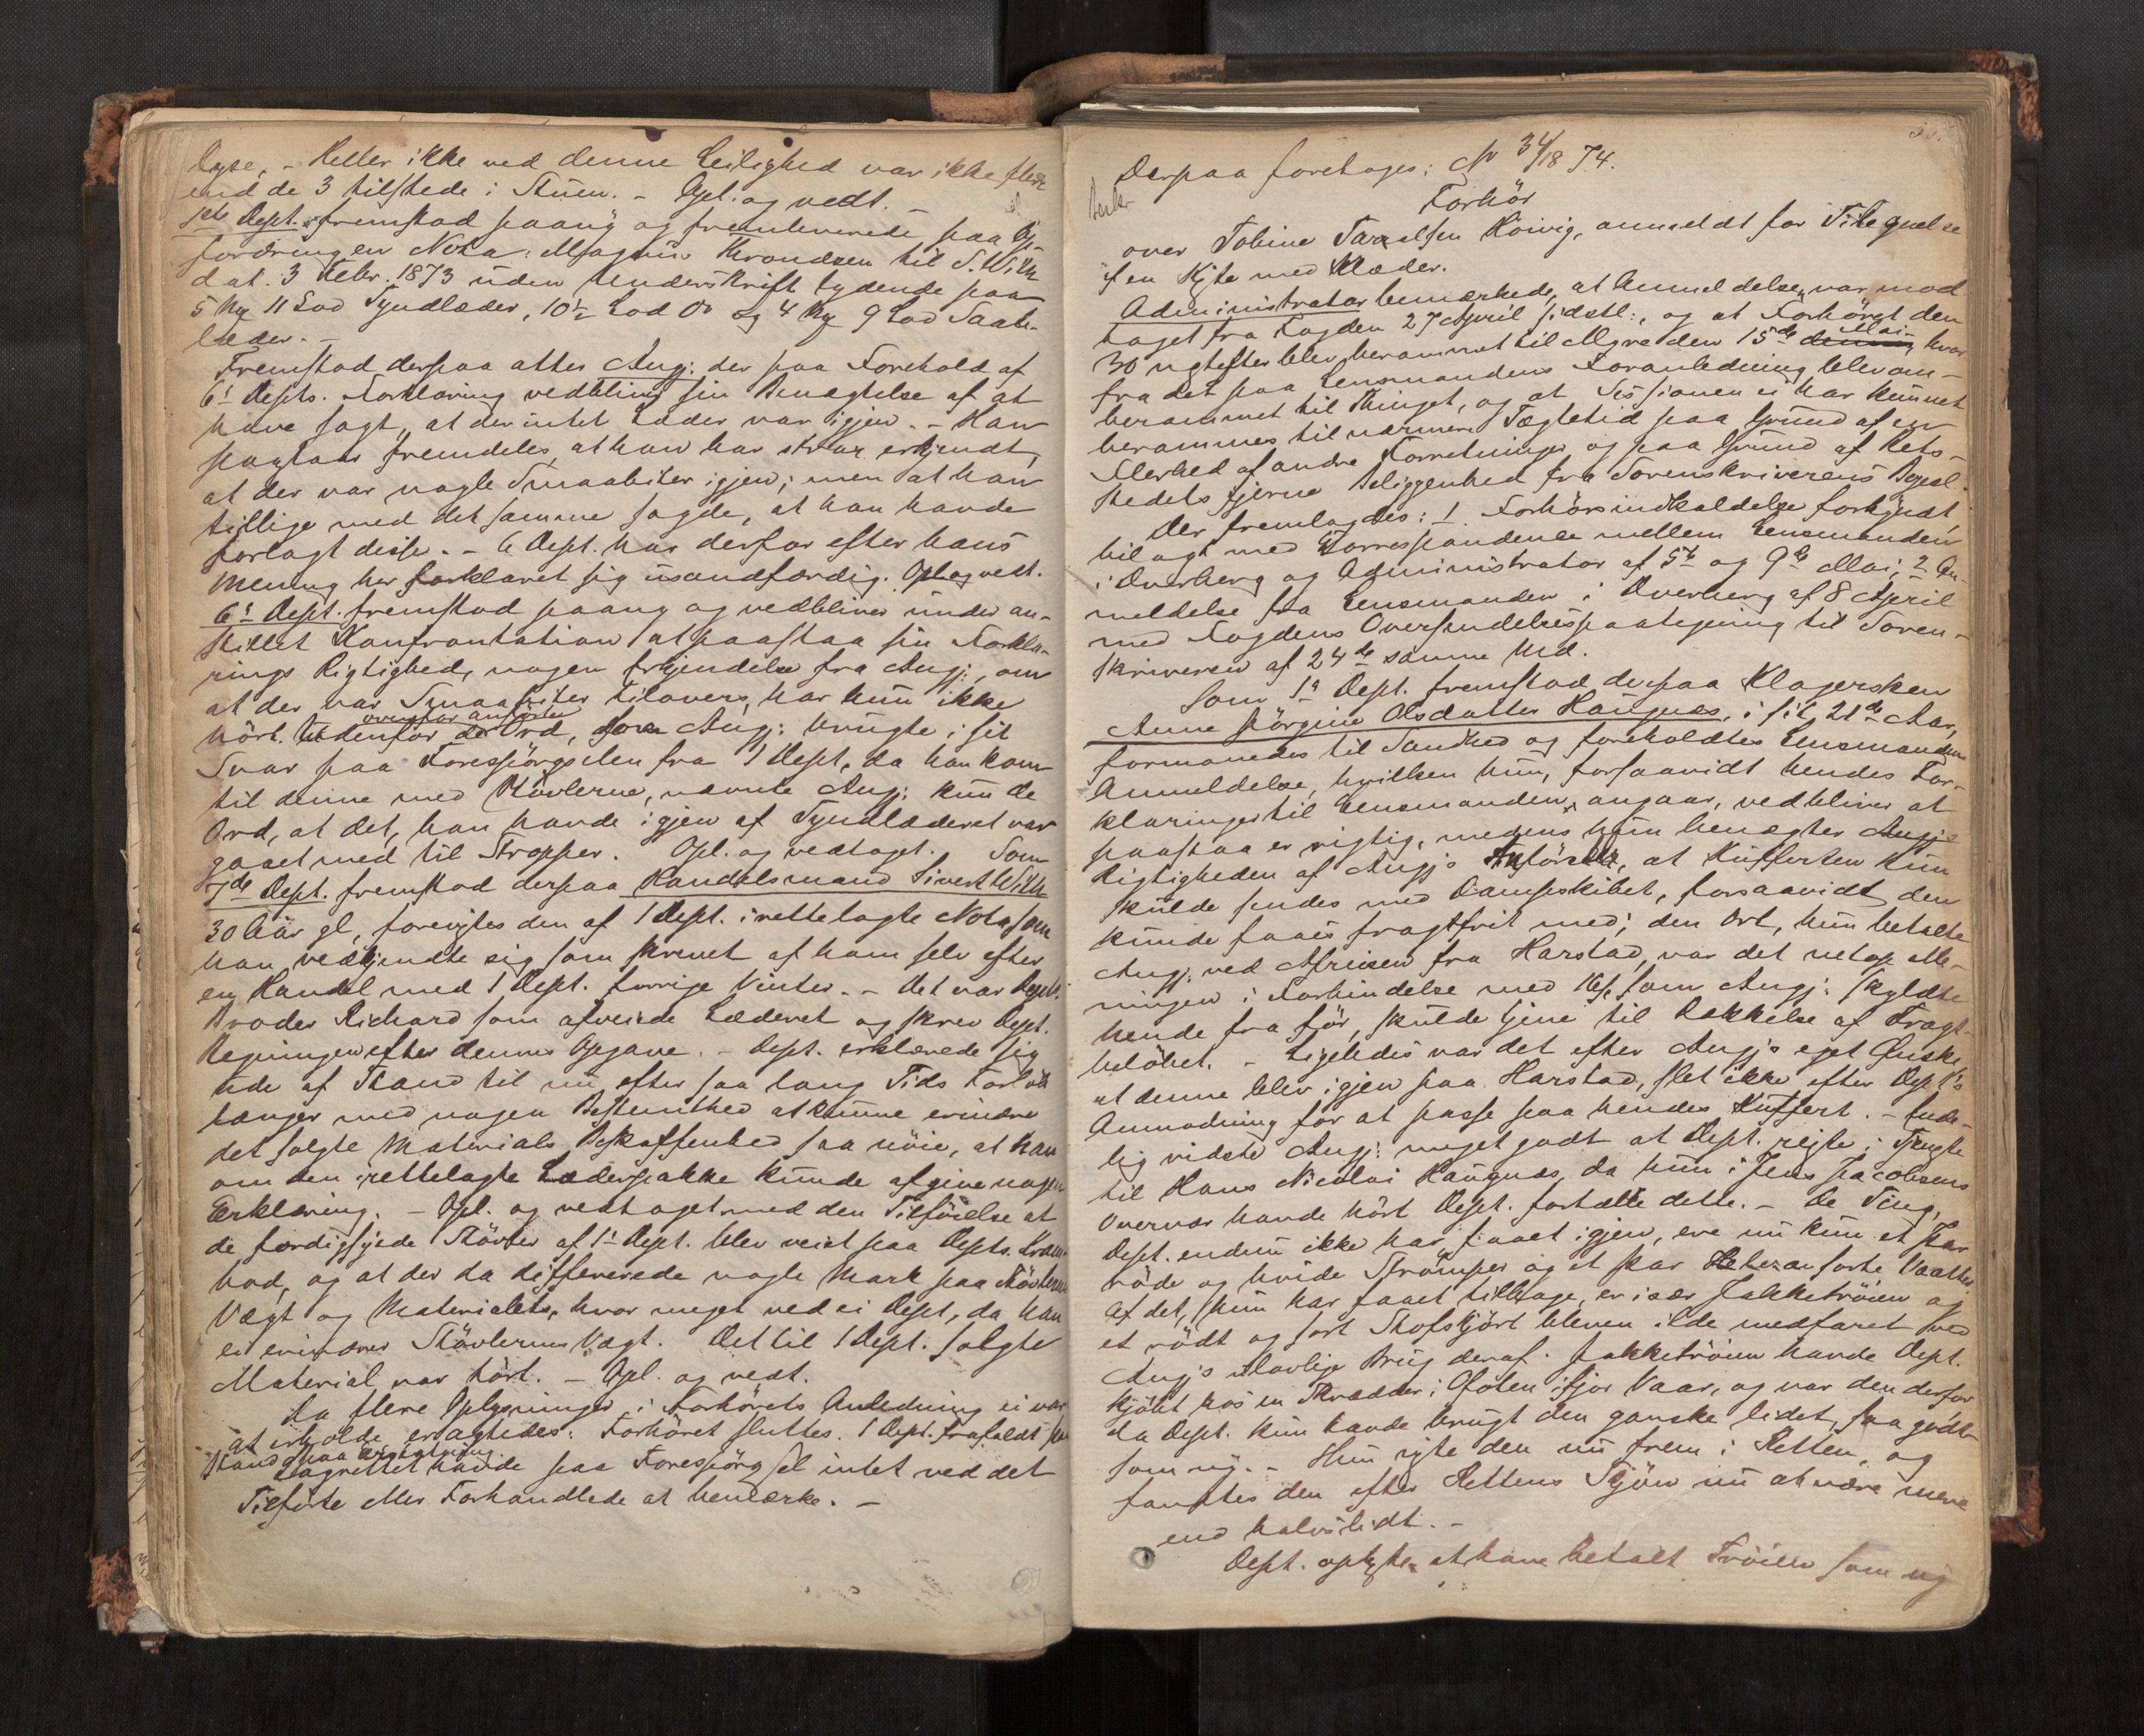 Dyse, - Heller ikke ved denne Leilighed var ikke flere
end de 3 tilstede i Stuen. - Opl. og vedt.
1ste Dept. fremstod paany og fremleverede paa Op-
fordringen Nota: Magnus Krondsen til S. With
dat. 3 Febr. 1873 uden Underskrift lydende paa
5 Mg 11 Lod Tyndlæder, 10½ Lod Do og 4 Mg 9 Lod Saale-
læder. -
Fremstod derpaa atter Angj: der paa Forehold af
6' Depts. Forklaring vedblev sin Benægtelse af at
have sagt, at der intet Læder var igjen. - Han
paastaar fremdeles, at han har strax erkjendt,
at der var nogle Smaabiter igjen; men at han
tillige med det samme sagde, at han havde
forlagt disse. - 6 Dept. har derfor efter hans
Mening her forklaret sig usandfærdig. Opl. og vedt.
6' Dept. fremstod paany og vedbliver under an-
stillet Konfrontation at paastaa sin Forkla-
rings Rigtighed, nogen Erkjendelse fra Angj:, om
at der var Smaabiter tilovers, har hun ikke
hört. Udenfor de ovenfor anförte Ord, som Angj: brugte i sit
Svar paa Forespörgselen fra 1 Dept, da han kom
til denne med Stövlerne, nævnte Angj: kun de
Ord, at det, han havde igjen af Tyndlæderet var
gaaet med til Stropper. Opl. og vedtaget. Som
7de Dept. fremstod derpaa Handelsmand Sivert With
30 Aar gl, forevistes den af 1 Dept. i rettelagte Nota som
han vedkjendte sig som skrevet af ham selv efter
en Handel med 1 Dept. forrige Vinter. - Det var Depts.
Broder Richard som afveiede Læderet og skrev Dept.
Regningen efter dennes Opgave. - Dept. erklærede sig
ude af Stand til nu efter saa lang Tids Forlöb
længer med nogen Bestemthed at kunne erindre
det solgte Materials Beskaffenhed saa nöie, at han
om den i rettelagte Læderpakke kunde afgive nogen
Erklæring. - Opl. og vedtaget med den Tilföielse at
de færdigsyede Stövler af 1' Dept. blev veiet paa Depts. Kram-
bod, og at der da differerede nogle Mark paa Stövlernes
Vægt og Materialets, hvor meget ved ei Dept, da han
ei erindrer Stövlernes Vægt. Det til 1 Dept. solgte
Material var tört. - Opl. og vedt.
Da flere Oplysninger i Forhörets Anledning ei var
at erholde eragtedes: Forhöret sluttes. 1 Dept. frafaldt
Paastand paa Erstatning.
Lagrettet havde paa Forespörgsel intet ved det
Tilförte eller Forhandlede at bemærke. -
Derpaa foretoges: No 34/18 74.
Forhör
over Tobine Taraldsen Höivig, anmeldt for Tilegnelse
af en Kiste med Klæder.
Administrator bemærkede, at Anmeldelsen var mod
taget fra Fogden 27 April sidstl:, og at Forhöret den
30 ugtefter blev berammet til Myre den 15de Mai, hvor
fra det paa Lensmandens Foranledning blev om-
berammet til Thinget, og at Sessionen ei har kunnet
berammes til nærmere Tægtetid paa Grund af en
Flerhed af andre Forretninger og paa Grund af Rets-
stedets fjerne Beliggenhed fra Sorenskriverens Bopæl.
Der fremlagdes: 1. Forhörsindkaldelse forkyndt,
bilagt med Korrespondence mellem Lensmanden
i Dverberg og Administrator af 5te og 9de Mai; 2 An-
meldelse fra Lensmanden i Dverberg af 8 April
med Fogdens Oversendelsespaategning til Soren-
skriveren af 24de samme Md.
Som 1ste Dept. fremstod derpaa Klagersken
Anne Jörgine Olsdatter Haugnæs, i sit 21de Aar,
formanedes til Sandhed og foreholdtes Lensmandens
Anmeldelse, hvilken hun, forsaavidt hendes For-
klaringer til Lensmanden angaar, vedbliver at
paastaa er rigtig, medens hun benægter
Rigtigheden af Angjs Anförsel, at Kufferten kun
skulde sendes med Dampskibet, forsaavidt den
kunde faaes fragtfrit med; den Ort, hun betalte
Angj: ved Afreisen fra Harstad, var det netop Me-
ningen i Forbindelse med 16s, som Angj: skyldte
hende fra för, skulde tjene til Dækkelse af Fragt-
belöbet. - Ligeledes var det efter Angjs eget Önske
at denne blev igjen paa Harstad, slet ikke efter Dept's
Anmodning for at passe paa hendes Kuffert. - Ende-
lig vidste Angj: meget godt at Dept. reiste i Tjeneste
til Hans Nicolai Haugnæs, da hun i Jens Jacobsens
Overvær havde hört Dept. fortælle dette. - De Ting,
Dept. endnu ikke har faaet igjen, ere nu kun et Par
röde og hvide Strömper og et Par sorte Vaatter.
Af det, hun har faaet tilbage, er især Jakketröien og
et rödt og sort Stofskjört bleven ilde medfaret ved
Angjs ulovlige Brug deraf. Jakketröien havde Dept.
kjöbt hos en Skrædder i Ofoten ifjor Vaar, og var den derfor
da Dept. kun havde brugt den ganske lidet, saa godt
som ny. - Hun viste den nu frem i Retten, og
fandtes den efter Rettens Skjön nu at være mere
end halvslidt. -
Dept. oplyste at have betalt Tröien som ny